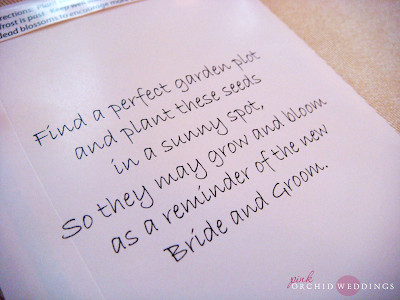 rections: Plan
frost is past. Keep
dead blossoms to encourage more
Find a perfect garden plot
and plant these seeds
in a sunny spot,
So they may grow and bloom
as a reminder of the new
Bride and Groom.
pink
ORCHID WEDDINGS